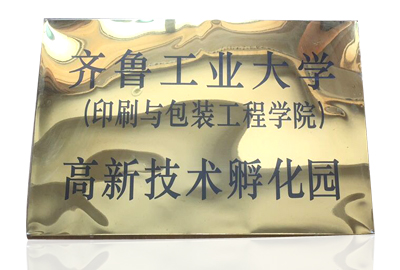 齐鲁工业大学
(印刷与包装工程学院)
高新技术孵化园